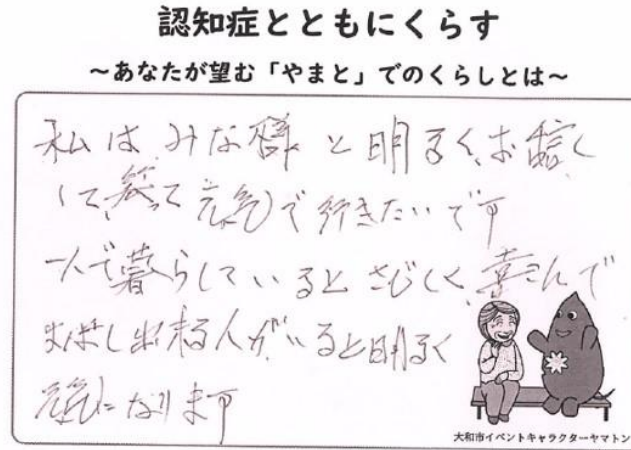 認知症とともにくらす
～あなたが望む「やまと」でのくらしとは～
私は みな様 と明るく、お話し
して、笑って 元気で 行きたいです
一人で暮らしていると さびしく、喜んで
おはなし出来る人が、いると明るく
元気になります
大和市イベントキャラクターヤマトン